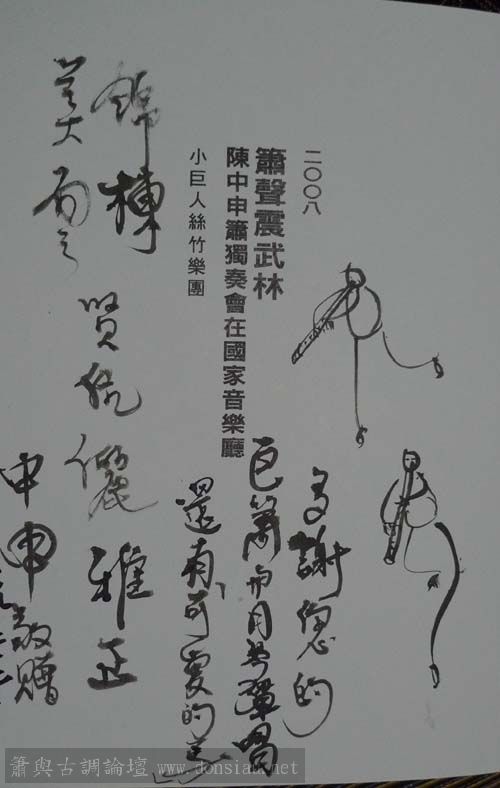 二〇〇八
簫聲震武林
陳中申簫獨奏會在國家音樂廳
小巨人絲竹樂團
錦棟
賢伉儷雅正
中申敬贈
多謝您的
簫 月琴彈唱
還有可愛的
簫與古調論壇 www.donsiau.net